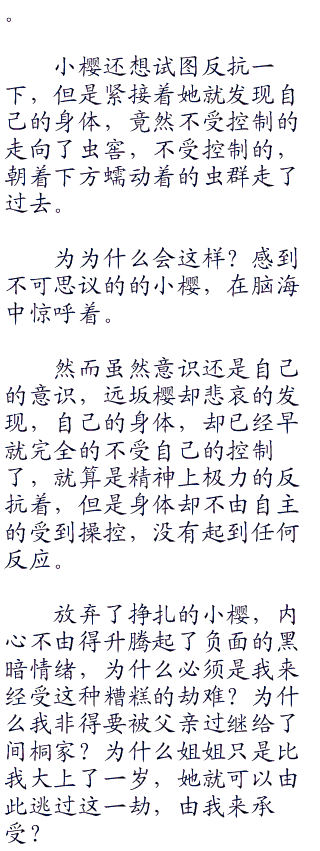 。
小樱还想试图反抗一
下，但是紧接着她就发现自
己的身体，竟然不受控制的
走向了虫窖，不受控制的，
朝着下方蠕动着的虫群走了
过去。
为为什么会这样？感到
不可思议的的小樱，在脑海
中惊呼着。
然而虽然意识还是自己
的意识，远坂樱却悲哀的发
现，自己的身体，却已经早
就完全的不受自己的控制
了，就算是精神上极力的反
抗着，但是身体却不由自主
的受到操控，没有起到任何
反应。
放弃了挣扎的小樱，内
心不由得升腾起了负面的黑
暗情绪，为什么必须是我来
经受这种糟糕的劫难？为什
么我非得要被父亲过继给了
间桐家？为什么姐姐只是比
我大上了一岁，她就可以由
此逃过这一劫，由我来承
受？